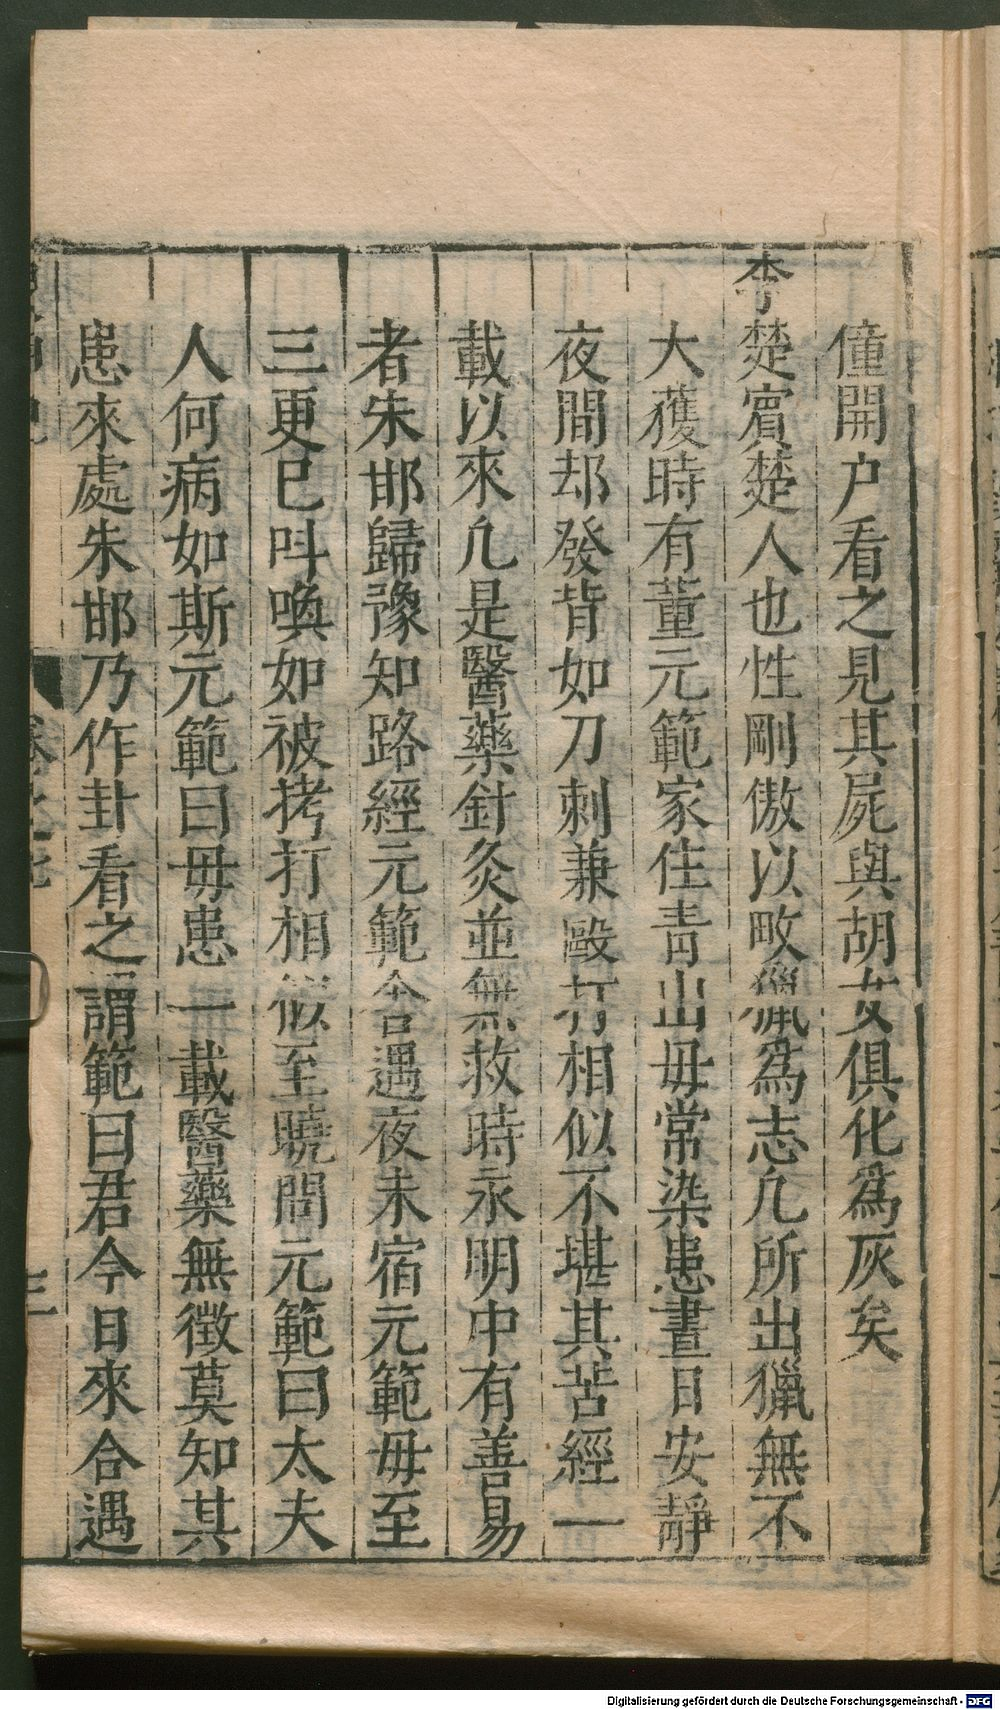 僮開户看之見其屍與胡女俱化爲灰矣
李楚賔楚人也性剛傲以畋獵爲志凢所出獵無不
大獲時有董元範家住青山毋常染患晝日安靜
夜間却發背如刀刺兼毆打相似不堪其苦經一
載以來凢是醫藥針灸並無救時永明中有善易
者朱邯歸豫知路經元範舍遇夜未宿元範毋至
三更巳呌喚如被拷打相似至曉問元範曰太夫
人何病如斯元範曰毋患一載醫藥無徵莫知其
患來處朱邯乃作卦看之謂範曰君今日來合遇
Digitalisierung gefördert durch die Deutsche Forschungsgemeinschaft - DFG